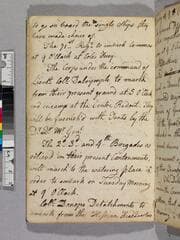 to go on board the single Ships they
have made choice of
The 71st Regt to embark tomorrow
at 9 o'Clock at Coles Ferry.
The Corps under the command of
Lieut. Coll. Dalrymple to march
from their present ground at 5 o'Clock
and encamp at the Center Redout. They
will be furnished with Tents by the
The 2d. 3d. and 4th Brigades as
in their present Cantonments,
will march to the watering place in
order to embark on Tuesday Morning
at 9 o'Clock.
Coll. Donops Detachments to
embark from the Hessian